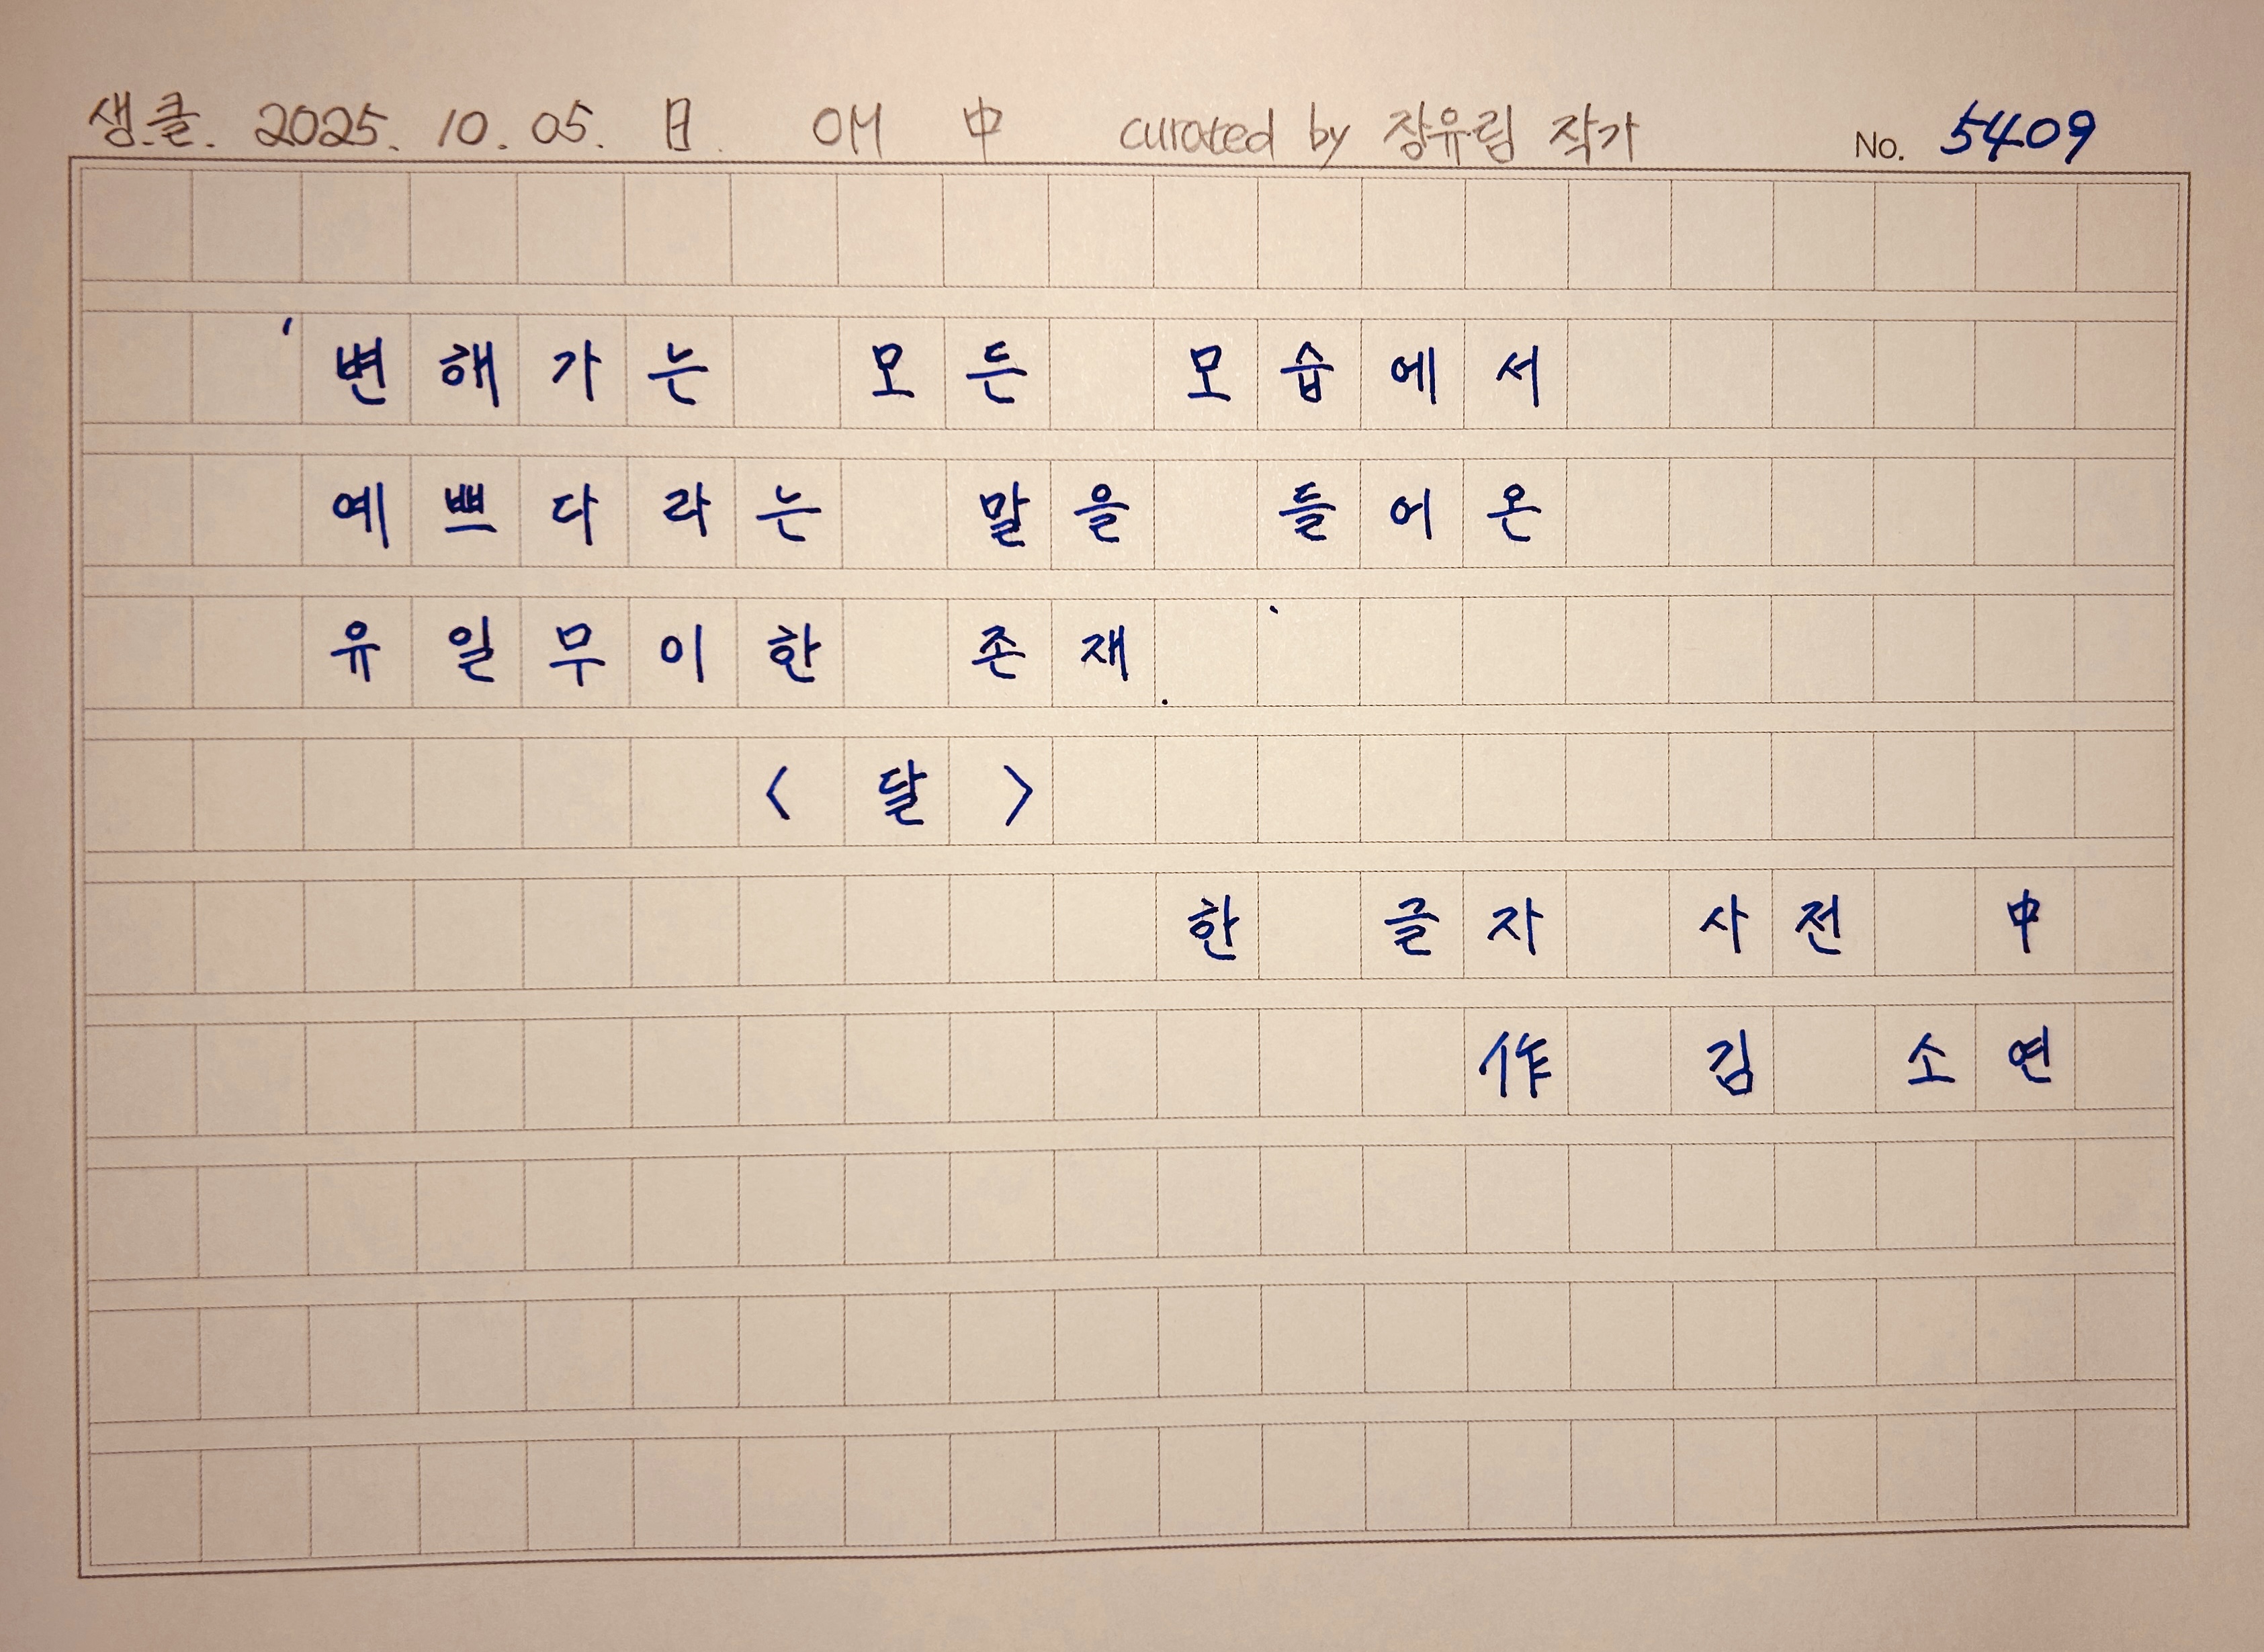 생.클. 2025. 10. 05. 日. OH 中 curated by 장유림 작가 No. 5409
'변해가는 모든 모습에서
예쁘다라는 말을 들어온
유일무이한 존재.'
<달>
한 글자 사전 中
作 김 소연